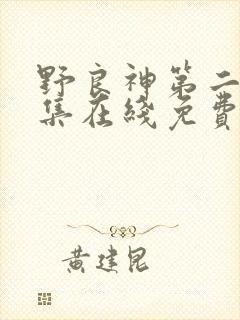 野良神第二
集在綫免費
黄建昆